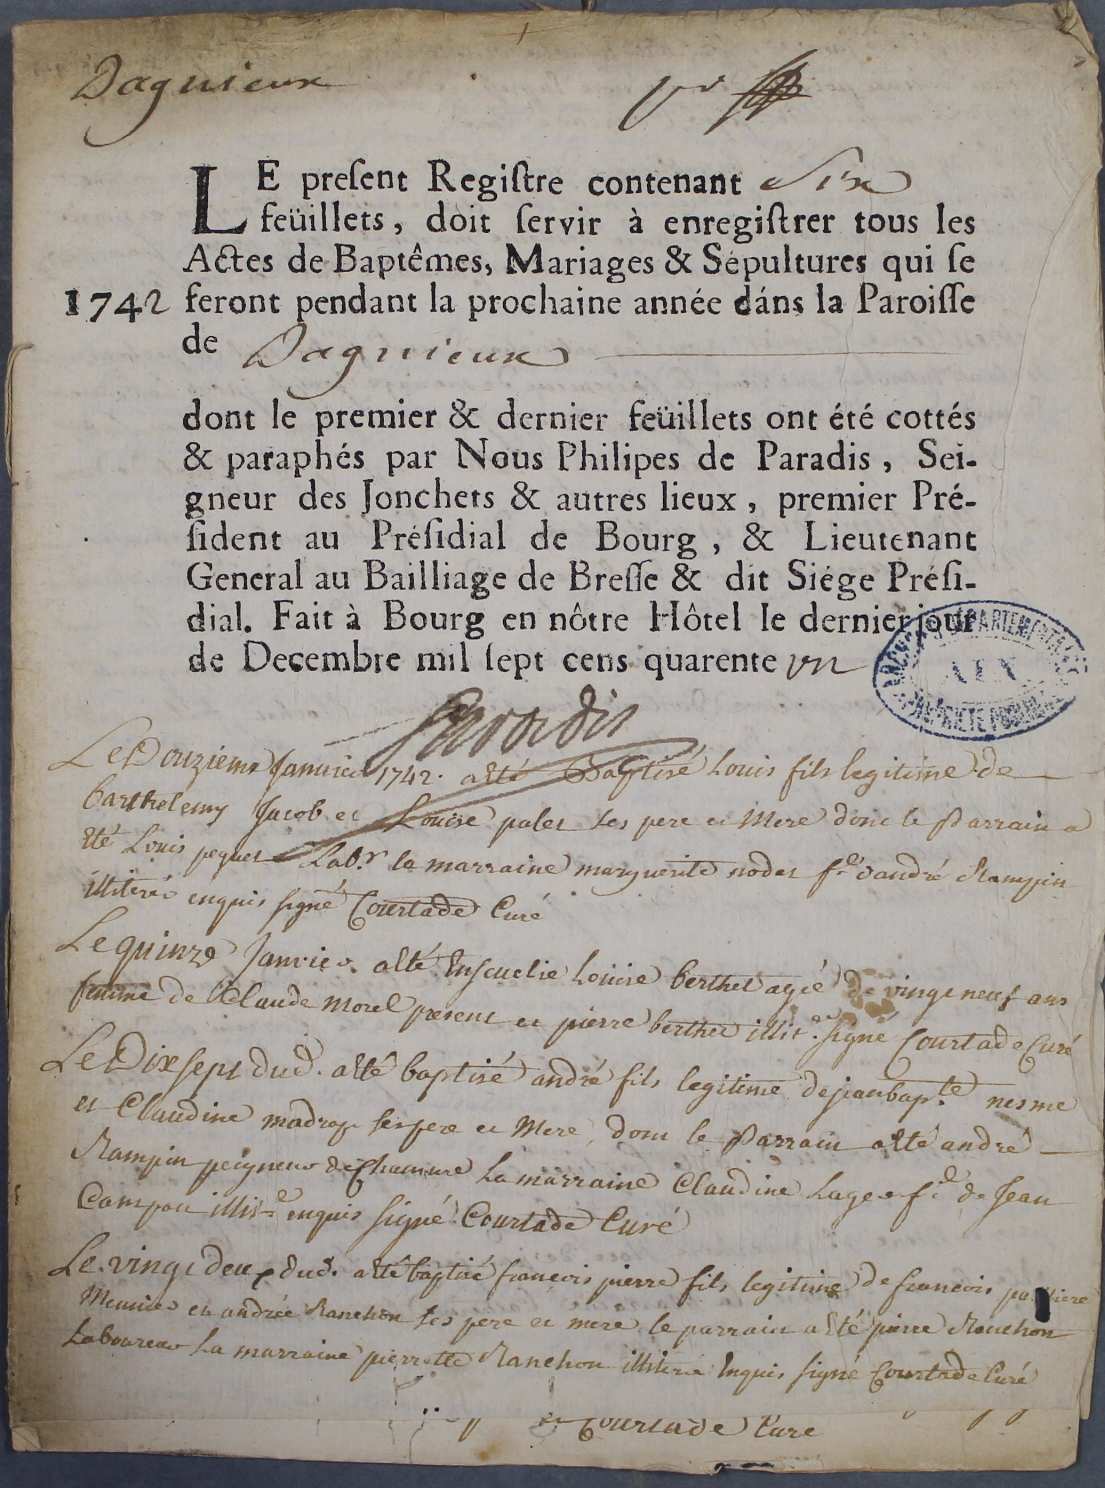 Dagnieux
LE preſent Regiſtre contenant Six
feüillets, doit ſervir à enregiſtrer tous les
Actes de Baptêmes, Mariages & Sépultures qui ſe
1742 feront pendant la prochaine année dáns la Paroiſſe
de Dagnieux
dont le premier & dernier feüillets ont été cottés
& paraphés par Nous Philipes de Paradis, Sei-
gneur des Jonchets & autres lieux, premier Pré-
ſident au Préſidial de Bourg, & Lieutenant
General au Bailliage de Breſſe & dit Siége Préſi-
dial. Fait à Bourg en nôtre Hôtel le dernier jour
de Decembre mil ſept cens quarente un
ARCHIVES DÉPARTEMENTALES
AIN
PROPRIÉTÉ PUBLIQUE
Paradis
Le Douzieme Janvier 1742. a eté Baptisé Louis fils legitime de
barthelemy Jacob et Louise ses pere et Mere dont le Parrain a
eté Louis Lab.r la marraine marguerite f.e d'andré Rampin
illiterés enquis signé Courtade Curé
Le quinze Janvier a eté Ensevelie Louise berthet agée de vingt neuf ans
femme de Claude morel present et pierre berthet illit. signé Courtade Curé
Le Dix sept dud. a eté baptisé andré fils legitime de jean bap.te nesme
et Claudine ses pere et Mere, dont le Parrain a eté andré
Rampin peigneur de Chanvre La marraine Claudine f.e de Jean
illit. enquis signé Courtade Curé
Le vingt deux dud. a eté baptisé françois pierre fils legitime de françois
Meunier et andrée Ranchon ses pere et mere le parrain a eté pierre Ranchon
Laboureur La marraine pierrette Ranchon illiteré Enquis signé Courtade Curé
Courtade Curé